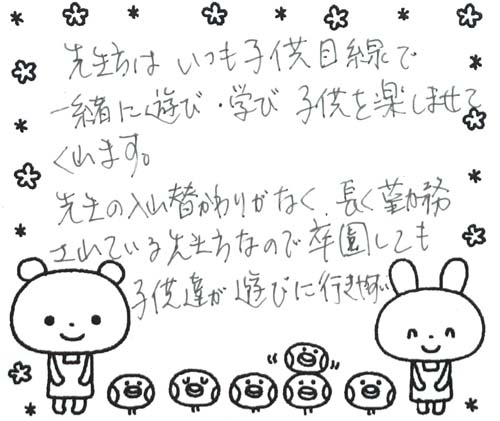 先生方は いつも子供目線で
一緒に遊び・学び 子供を楽しませて
くれます。
先生の入れ替わりがなく、長く勤務
されている先生方なので卒園しても
子供達が遊びに行きやすい